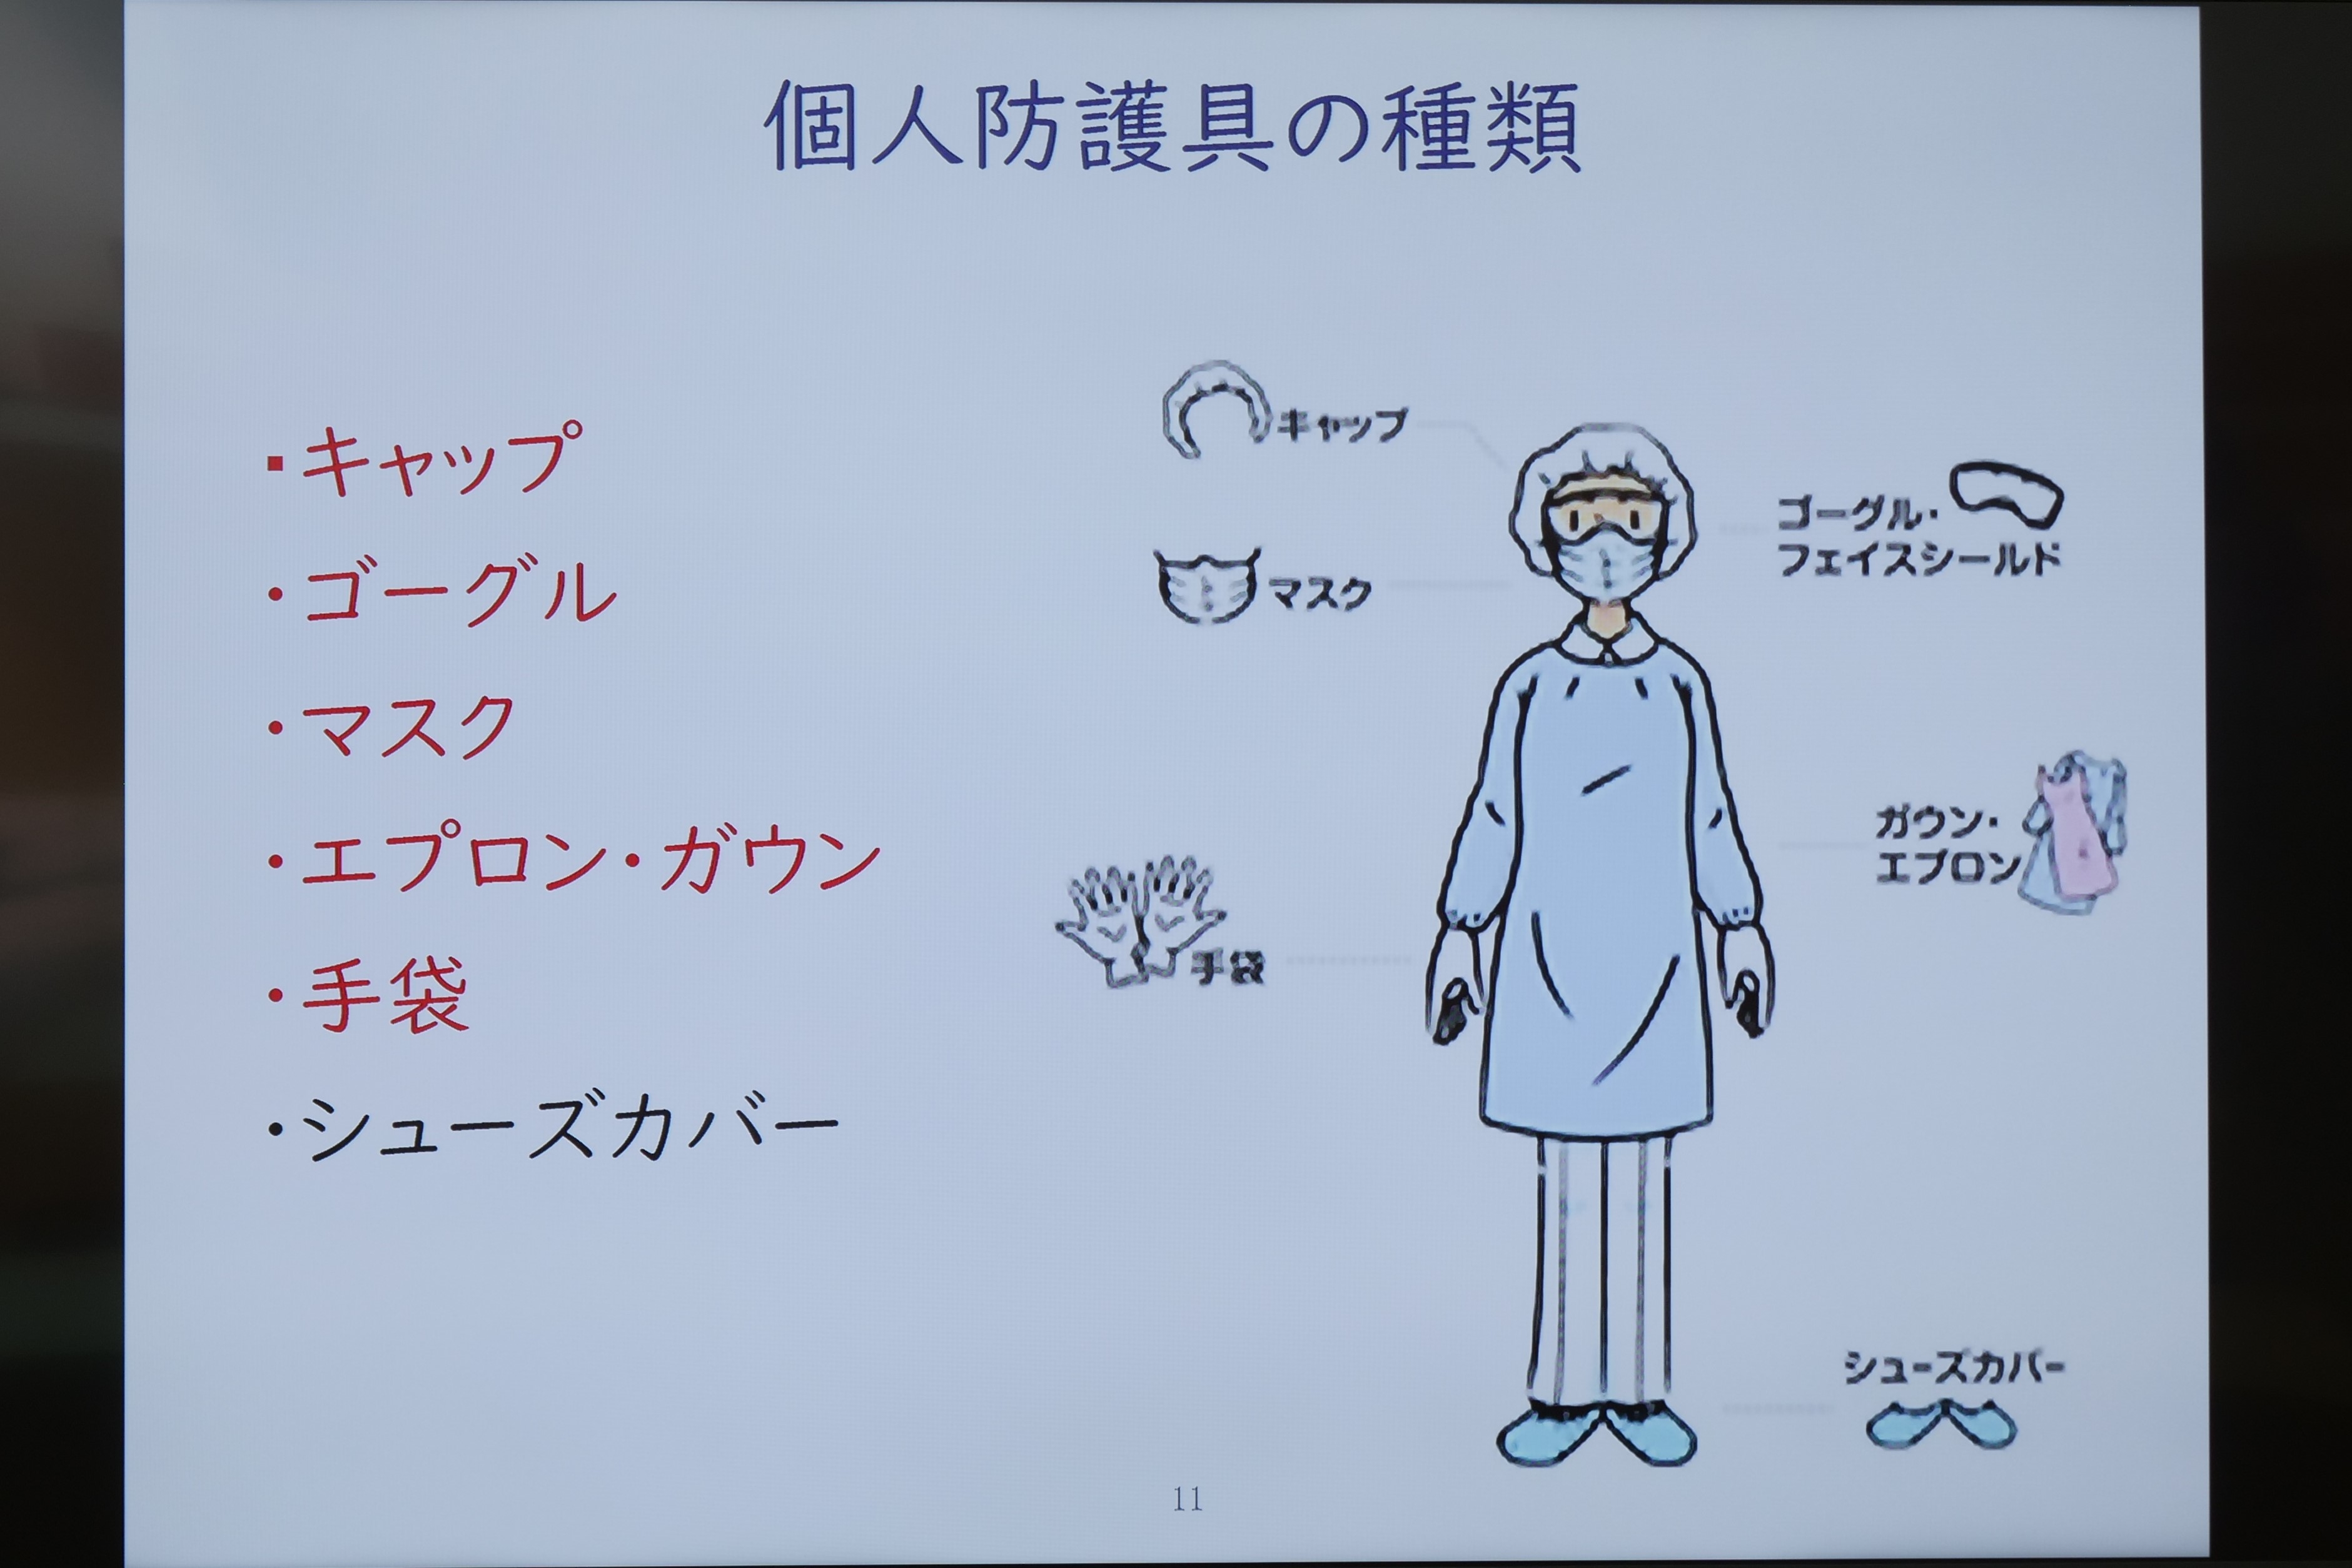 個人防護具の種類
▪キャップ
・ゴーグル
・マスク
・エプロン・ガウン
・手袋
・シューズカバー
キャップ
マスク
手袋
ゴーグル・
フェイスシールド
ガウン・
エプロン
シューズカバー
11